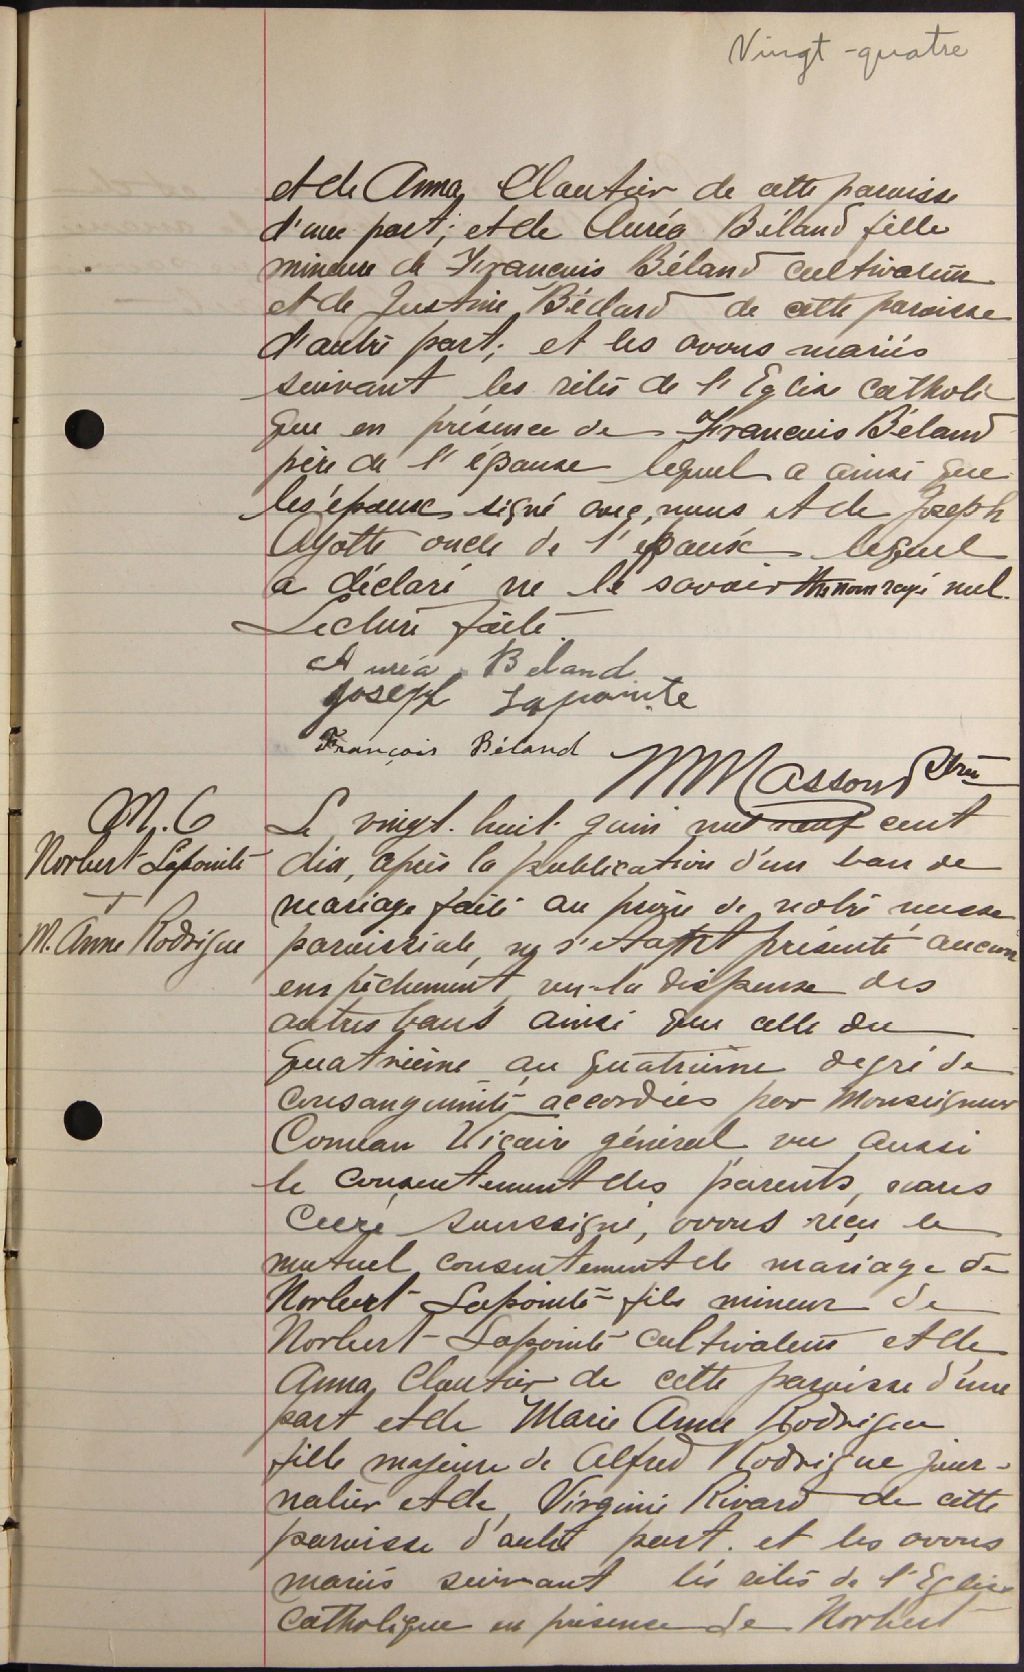 Vingt-quatre
et de Anna Cloutier de cette paroisse
d'une part; et de Auréa Béland fille
mineure de Francois Béland cultivateur
et de Justine Bédard de cette paroisse
d'autre part; et les avons mariés
suivant les rites de l'Eglise catholi
que en présence de Francois Béland
père de l'épouse lequel a ainsi que
les époux signé avec nous et de Joseph
Ayotte oncle de l'époux lequel
a déclaré ne le savoir nom rayé nul.
Lecture faite.
Auréa Beland
Joseph Lapointe
François Béland
M Masson Ptre
M. 6
Norbert Lapointe
+
M. Anne Rodrigue
Le vingt-huit juin mil neuf cent
dix, après la publication d'un ban de
mariage faite au prône de notre messe
paroissiale, ne s'étant présenté aucun
empêchement vu la dispense des
autres bans ainsi que celle du
quatrième au quatrième degré de
consanguinité accordées par Monseigneur
Comeau Vicaire général vu aussi
le consentement des parents, nous
Curé soussigné, avons reçu le
mutuel consentement de mariage de
Norbert Lapointe fils mineur de
Norbert Lapointe cultivateur et de
Anna Cloutier de cette paroisse d'une
part et de Marie Anne Rodrigue
fille majeure de Alfred Rodrigue jour-
nalier et de Virginie Rivard de cette
paroisse d'autre part. et les avons
mariés suivant les rites de l'Eglise
catholique en présence de Norbert